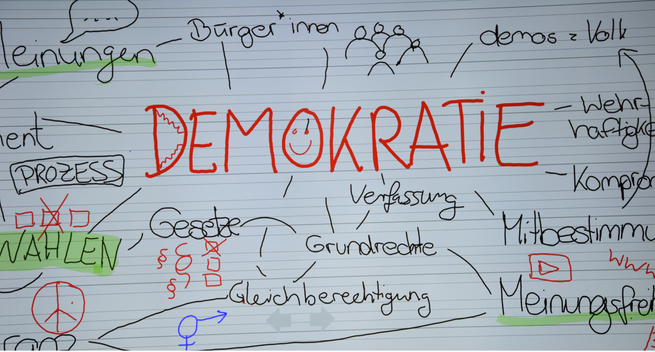 Meinungen
Bürger*innen
demos = Volk
DEMOKRATIE
Wehr-
haftigke
ment
PROZESS
Kompro
Verfassung
WAHLEN
Gesetze
Mitbestimmu
Grundrechte
§
§
www
Gleichberechtigung
Meinungsfrei